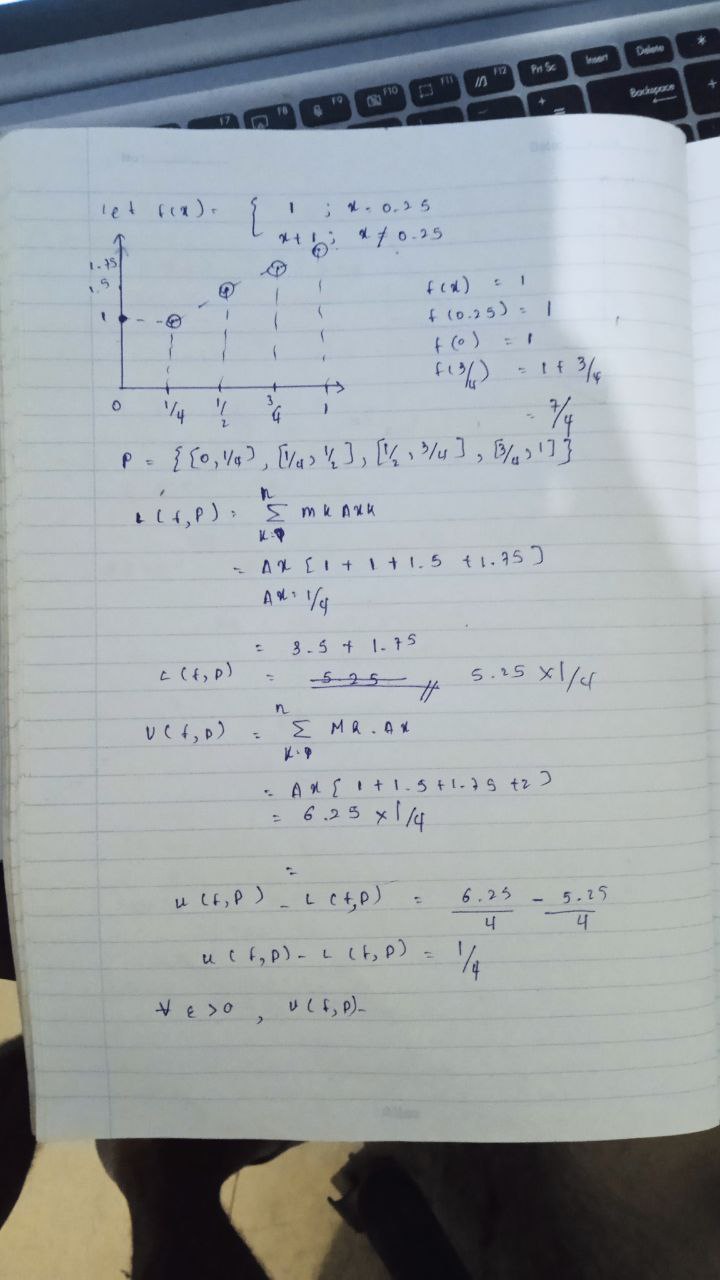 F7 F8 F9 F10 F11 F12 Prt Sc Insert Delete *
+ = Backspace +
let f(x) = { 1 ; x = 0.25
x+1 ; x ≠ 0.25
1.75
1.5
1
0 1/4 1/2 3/4 1
f(x) = 1
f(0.25) = 1
f(0) = 1
f(3/4) = 1 + 3/4
= 7/4
P = {[0,1/4], [1/4, 1/2], [1/2, 3/4], [3/4, 1]}
L(f,P) = n Σ mk Δxk
= Δx [1 + 1 + 1.5 + 1.75]
Δx = 1/4
= 3.5 + 1.75
L(f,P) = 5.25 5.25 x 1/4
U(f,P) = n Σ Mk . Δx
= Δx [1 + 1.5 + 1.75 + 2]
= 6.25 x 1/4
=
U(f,P) - L(f,P) = 6.25/4 - 5.25/4
U(f,P) - L(f,P) = 1/4
∀ ε > 0 , U(f,P) -